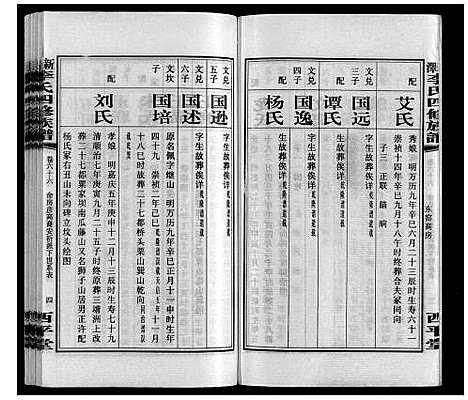 新李氏四修族谱
艾氏
配
秀娘 明万历九年辛巳六月二十三辰时生寿六十一
崇祯十四年辛巳九月十八午时终葬合夫家同向
子三 正联
国远
文兑三子
字生故葬俟详
谭氏
配
国逸
文兑四子
字生故葬俟详
杨氏
配
东窑商房
西平堂
国逊
文兑五子
字生故葬俟详
国述
文坎六子
字生故葬俟详
国培
文坎子
原名佩字继山 明万历九年辛巳正月十一申时生
四十九 崇祯二年己巳
十八巳时故葬三十七都桥头栗山巽山乾向
刘氏
配
孝娘 明嘉庆五年庚申十二月十三辰时生寿七十九
清顺治七年庚寅九月二十五子时终原葬三塘洲上改
葬二十七都粟家坝南瓜藤山又名狮子山居男正许配
杨氏冢右丑山未向碑立坟头绘图
新李氏四修族谱
卷六十六
世系表
四
西平堂